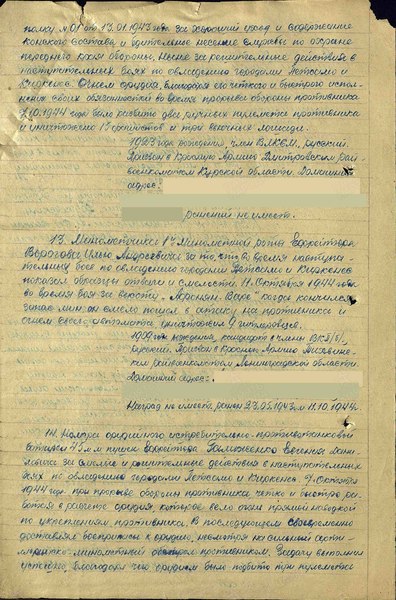 полку №01 от 13.01.1943 года за хороший уход и содержание
конского состава и бдительное несение службы по охране
переднего края обороны, Несёт за решительные действия в
наступательных боях по овладению городами Петсамо и
Киркенес. Огнем орудия, благодаря его четкого и быстрого испол-
нения своих обязанностей во время прорыва обороны противника
7.10.1944 года было разбито два ручных пулемета противника
и уничтожено 15 солдатов и три вьючных лошади.
1923 года рождения, член ВЛКСМ, русский.
Призван в Красную Армию Дмитровским рай-
военкоматом Курской области. Домашний
адрес:
ранений не имеет.
13. Минометчика 1й Минометной роты Ефрейтора
Ворогова Илью Андреевича за то, что во время наступа-
тельных боев по овладению городами Петсамо и Киркенес
показал образцы отваги и смелости. 11 Октября 1944 года
во время боя за высоту "Аронен-Вара" когда кончился
запас мин он смело пошел в атаку на противника и
огнем своего автомата уничтожил 9 гитлеровцев.
1909 года рождения, кандидат в члены ВКП/б/,
русский. Призван в Красную Армию
райвоенкоматом Ленинградской области.
Домашний адрес:
Наград не имеет, ранен 23.05.1943 и 11.10.1944г.
14. Номера орудийного истребительно-противотанковой
батареи 45 м.м пушек Ефрейтора Евгения Дани-
ловича за смелые и решительные действия в наступательных
боях по овладению городами Петсамо и Киркенес 7. Октября
1944 года при прорыве обороны противника, четко и быстро ра-
ботая в расчете орудия, которое вело огонь прямой наводкой
по укреплениям противника. В последующем своевременно
доставлял боеприпасы к орудию, несмотря на сильный арти-
лерийско-минометный обстрел противником. Задачу выполнил
успешно, благодаря чего орудием было подбито три пулемета